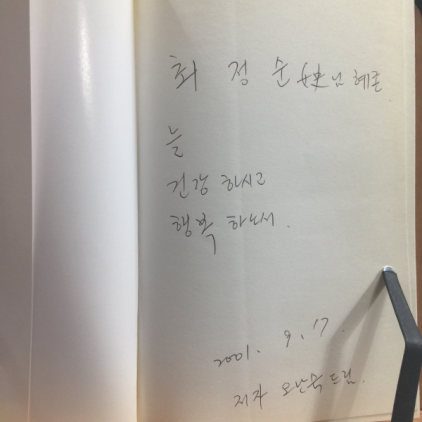 최 정 순 女史님 혜존
늘
건강 하시고
행복 하소서.
2001. 9. 17.
저자 오난숙 드림.